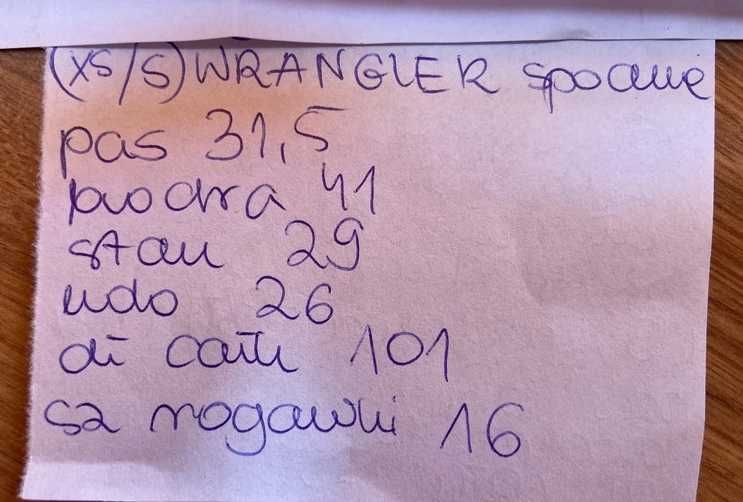 (XS/S) WRANGLER spodnie
pas 31,5
biodra 41
stan 29
udo 26
dł całk 101
sz nogawki 16